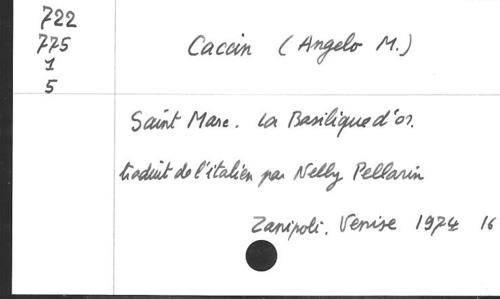 722
775
1
5
Caccin (Angelo M.)
Saint Marc. La Basilique d'or.
traduit de l'italien par Nelly Pellarin
Zanipoli. Venise 1974 16